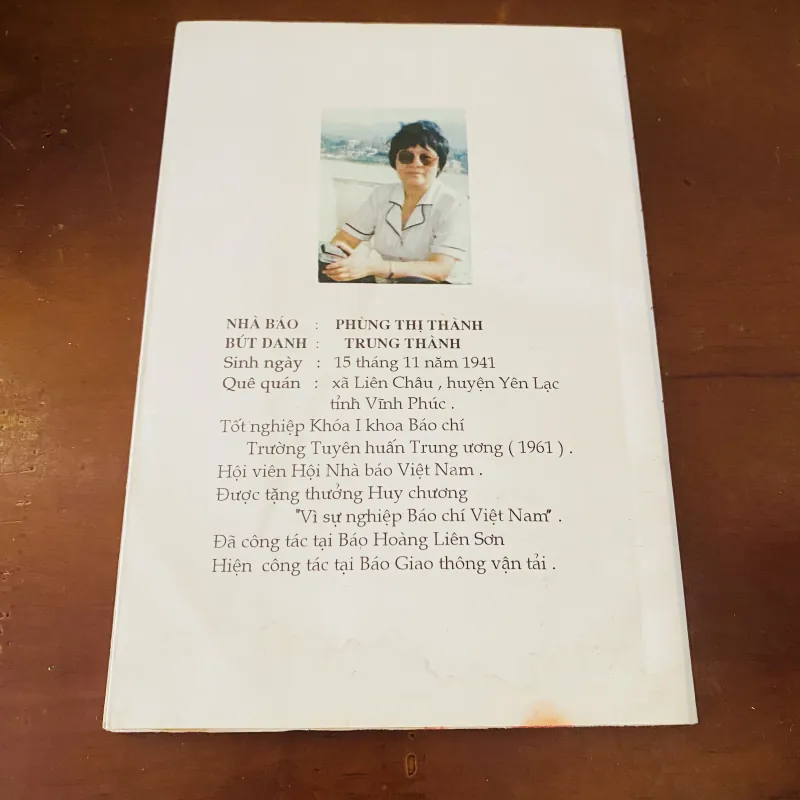 NHÀ BÁO : PHÙNG THỊ THÀNH
BÚT DANH : TRUNG THÀNH
Sinh ngày : 15 tháng 11 năm 1941
Quê quán : xã Liên Châu , huyện Yên Lạc
tỉnh Vĩnh Phúc .
Tốt nghiệp Khóa I khoa Báo chí
Trường Tuyên huấn Trung ương ( 1961 ) .
Hội viên Hội Nhà báo Việt Nam .
Được tặng thưởng Huy chương
"Vì sự nghiệp Báo chí Việt Nam" .
Đã công tác tại Báo Hoàng Liên Sơn
Hiện công tác tại Báo Giao thông vận tải .